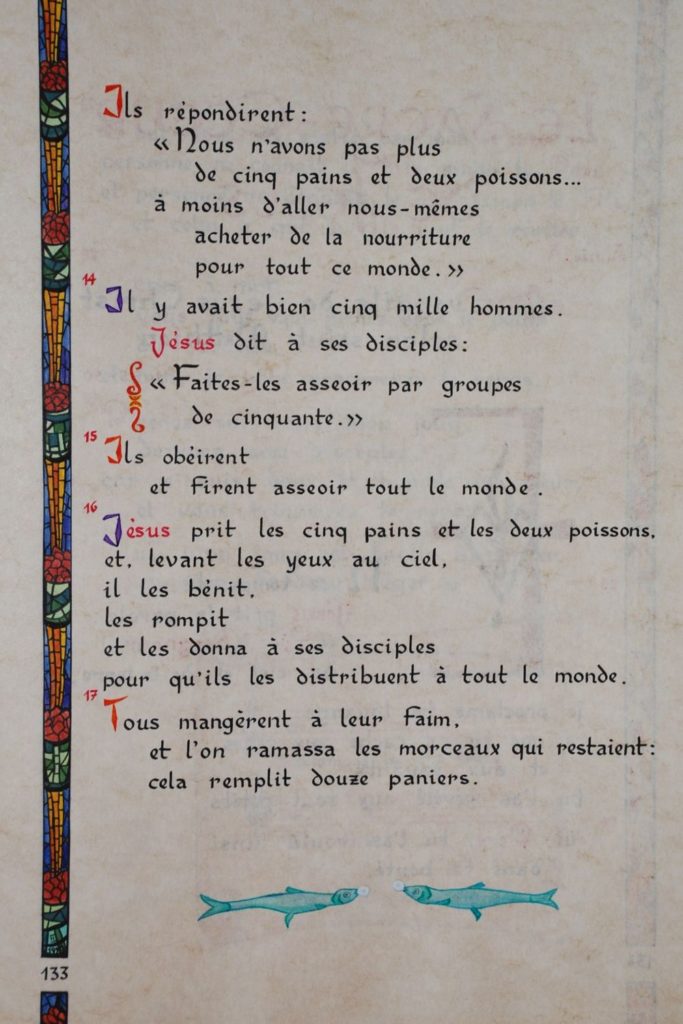 Ils répondirent:
«Nous n'avons pas plus
de cinq pains et deux poissons...
à moins d'aller nous-mêmes
acheter de la nourriture
pour tout ce monde.»
14
Il y avait bien cinq mille hommes.
Jésus dit à ses disciples:
«Faites-les asseoir par groupes
de cinquante.»
15
Ils obéirent
et firent asseoir tout le monde.
16
Jésus prit les cinq pains et les deux poissons,
et, levant les yeux au ciel,
il les bénit,
les rompit
et les donna à ses disciples
pour qu'ils les distribuent à tout le monde.
17
Tous mangèrent à leur faim,
et l'on ramassa les morceaux qui restaient:
cela remplit douze paniers.
133